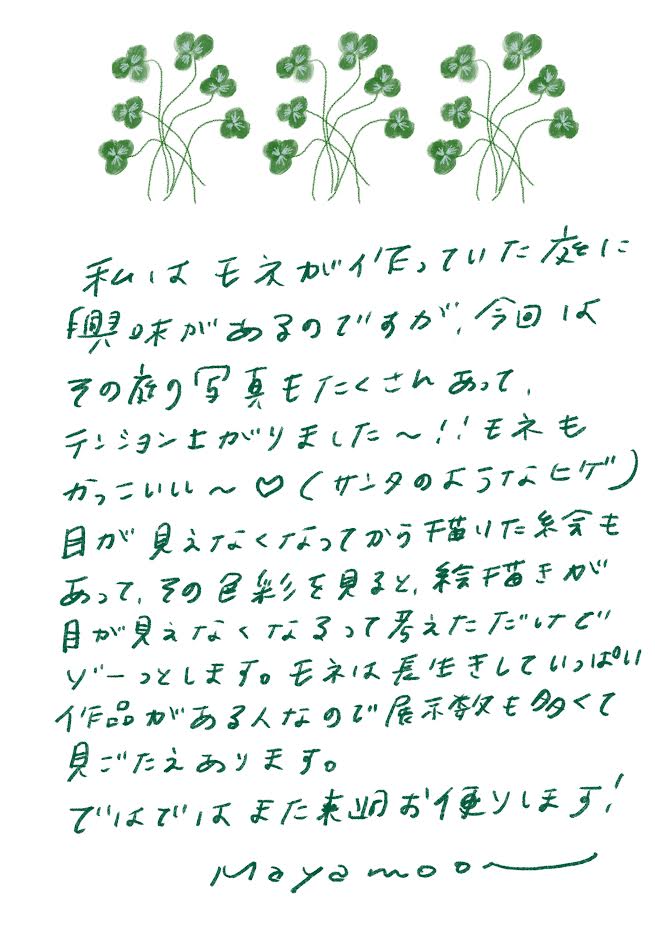 私は モネが作っていた庭に
興味があるのですが、今回は
その庭の写真もたくさんあって、
テンション上がりました〜!! モネも
かっこいい〜♡(サンタのようなヒゲ)
目が見えなくなってから描いた絵も
あって、その色彩を見ると、絵描きが
目が見えなくなるって考えただけで
ゾーっとします。モネは長生きしていっぱい
作品がある人なので展示数も多くて
見ごたえあります。
ではでは また来週お便りします!
Mayamoon